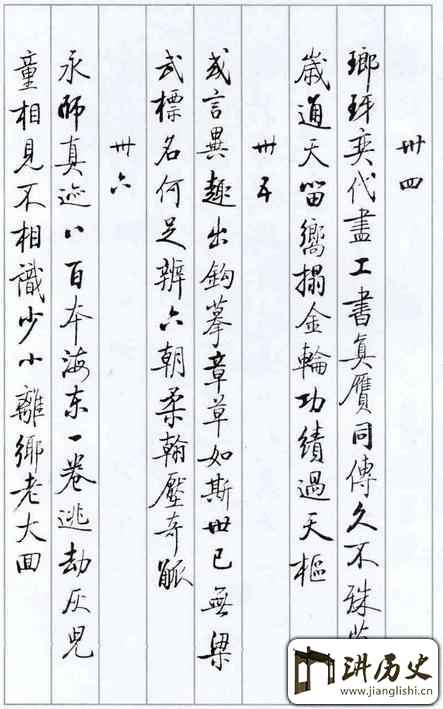 卅四
瑯琊奕代盡工書真贋同傳久不殊
歲通天留嚮搨金輪功績過天樞
卅五
或言異趣出鈎摹章草如斯世已無梁
武標名何足辨六朝柔翰壓奇觚
卅六
永師真迹八百本海东一卷逃劫灰兒
童相見不相識少小離鄉老大回
讲历史
www.jianglishi.cn